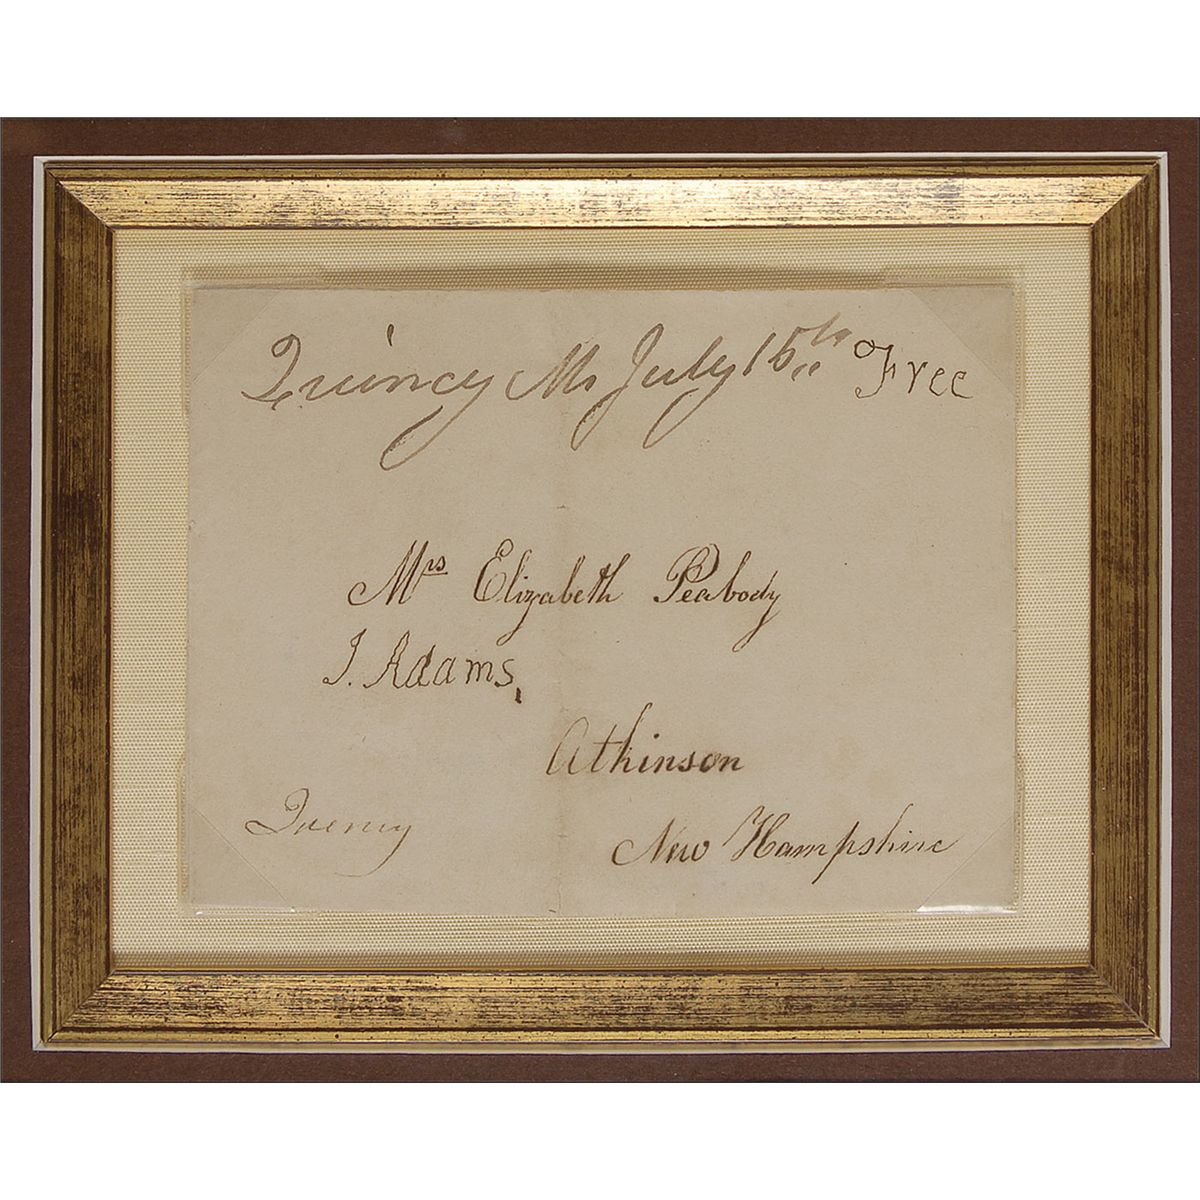 Quincy Ms July 15th Free
Mrs Elizabeth Peabody
J. Adams,
Atkinson
Quency
New Hampshire